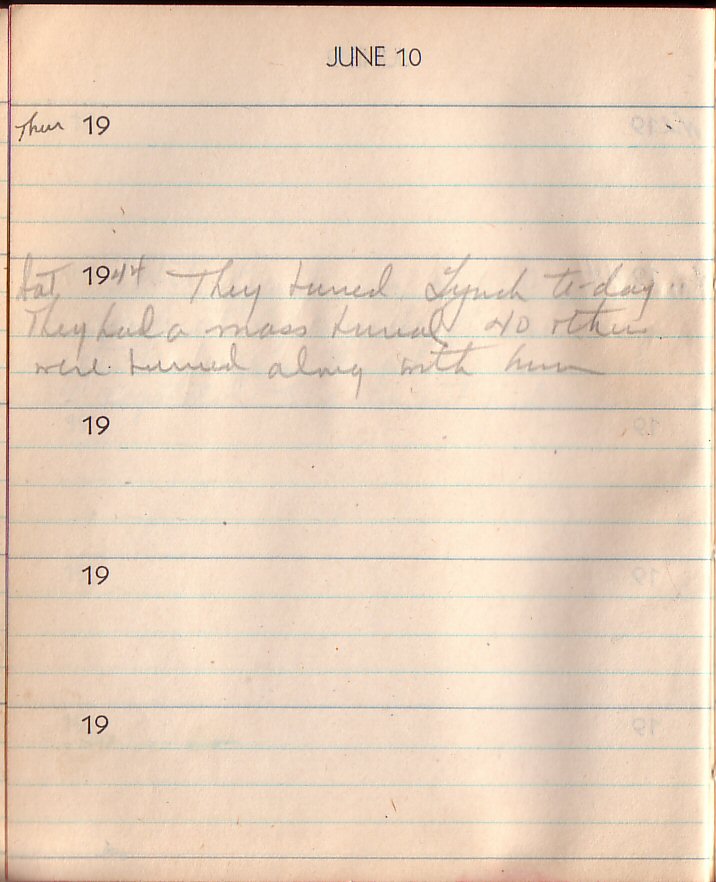 JUNE 10
Thur 19
Sat 1944 They buried Lynch to-day
They had a mass burial 40 others
were buried along with him
19
19
19